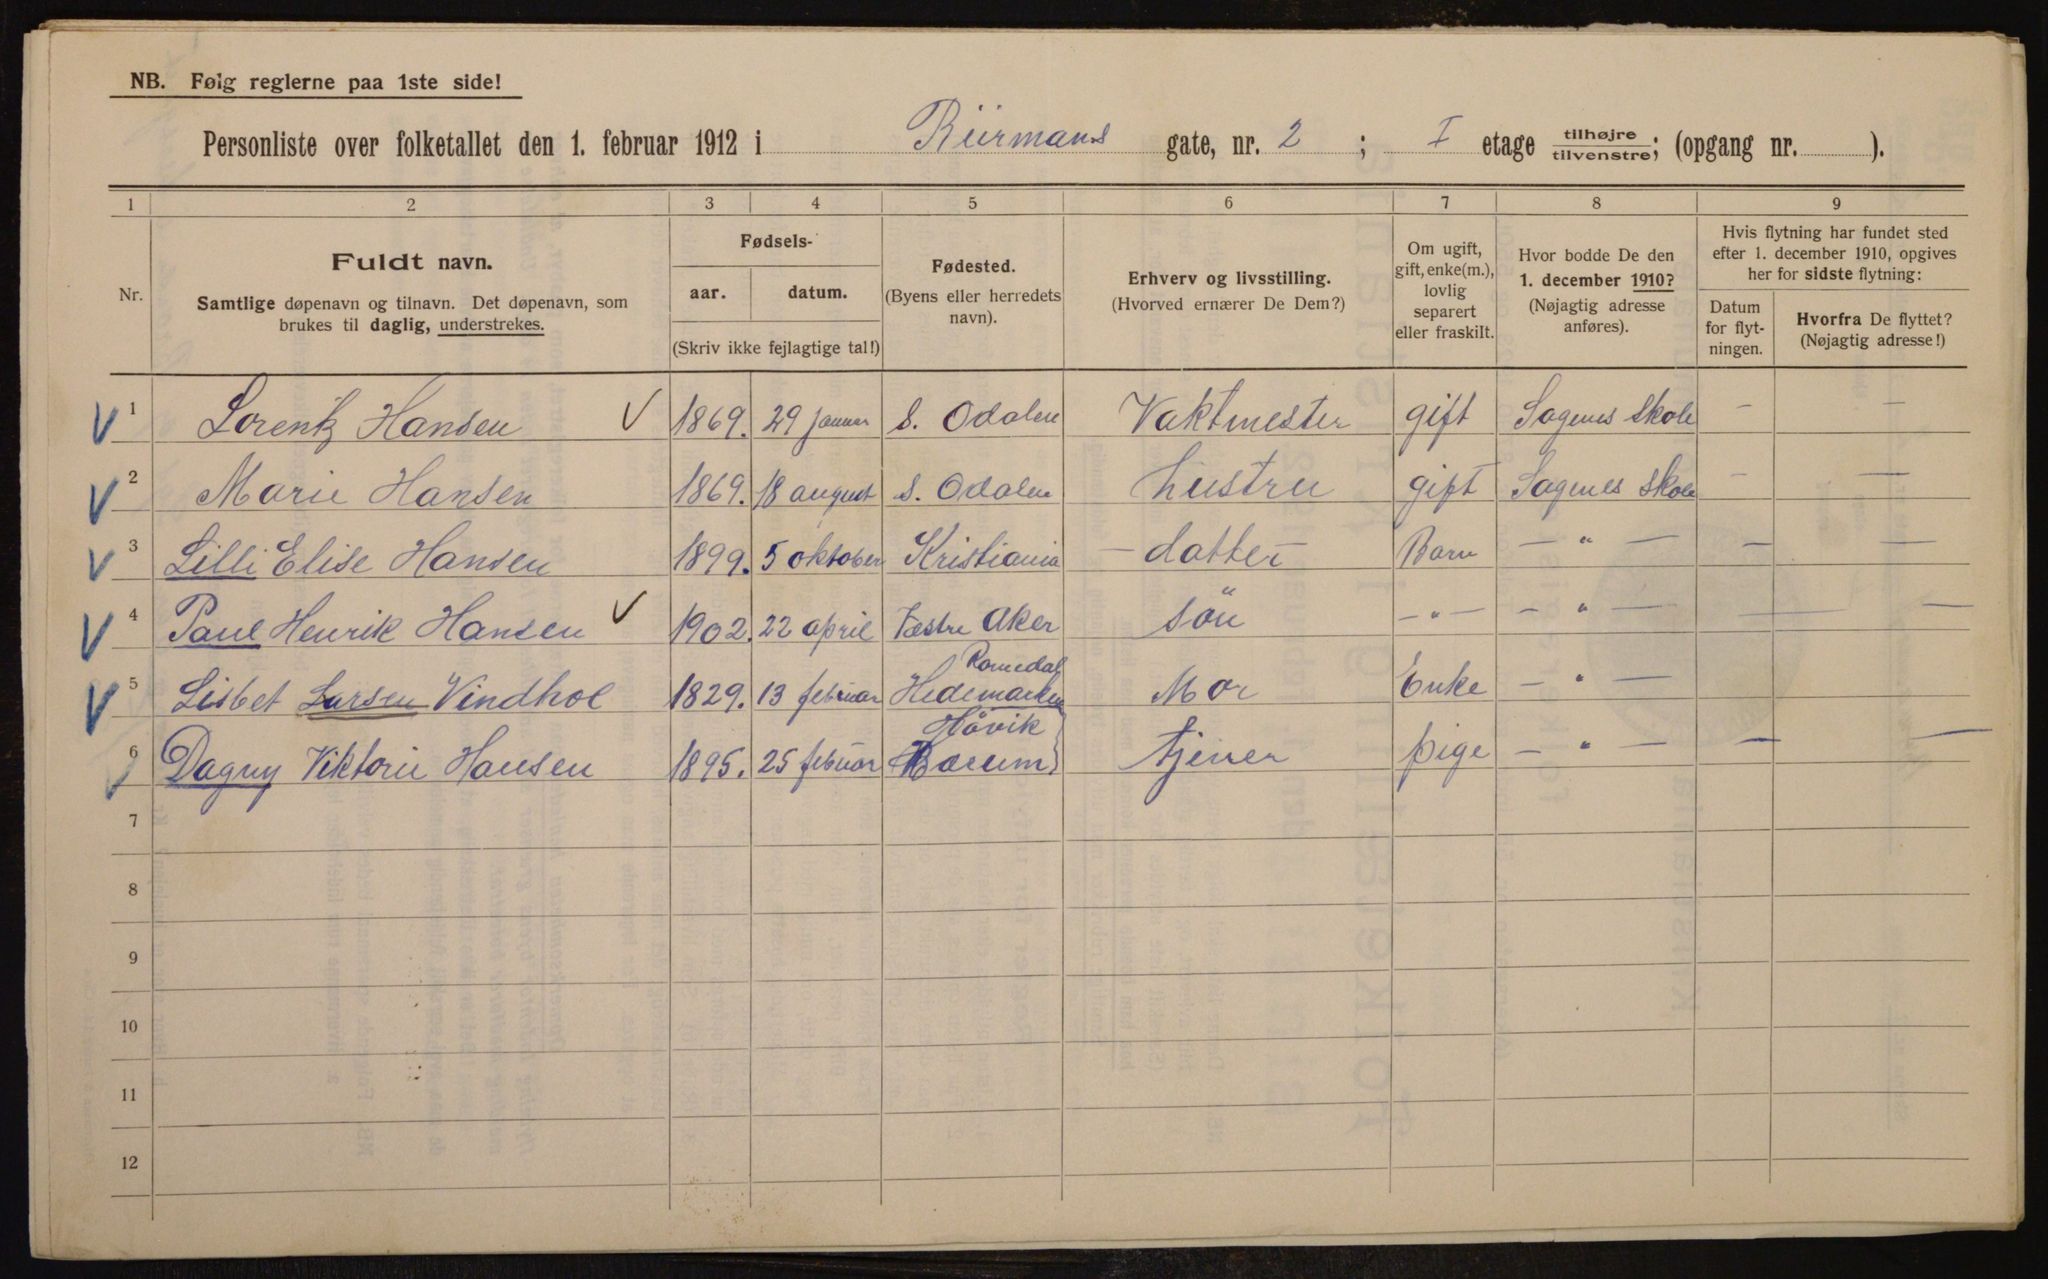 NB. Følg reglerne paa 1ste side!
Personliste over folketallet den 1. februar 1912 i Biermans gate, nr. 2 ; I etage tilhøjre/tilvenstre; (opgang nr. ).
1 2 3 4 5 6 7 8 9
Nr.
Fuldt navn.
Samtlige døpenavn og tilnavn. Det døpenavn, som
brukes til daglig, understrekes.
Fødsels-
aar. datum.
(Skriv ikke fejlagtige tal!)
Fødested.
(Byens eller herredets
navn).
Erhverv og livsstilling.
(Hvorved ernærer De Dem?)
Om ugift,
gift, enke(m.),
lovlig
separert
eller fraskilt.
Hvor bodde De den
1. december 1910?
(Nøjagtig adresse
anføres).
Hvis flytning har fundet sted
efter 1. december 1910, opgives
her for sidste flytning:
Datum
for flyt-
ningen.
Hvorfra De flyttet?
(Nøjagtig adresse!)
V 1 Lorentz Hansen V 1869. 29 januar S. Odalen Vaktmester gift Sagenes skole – –
V 2 Marie Hansen 1869. 18 august S. Odalen hustru gift Sagenes skole – –
V 3 Lilli Elise Hansen 1899. 5 oktober Kristiania – datter – Barn – " – – –
V 4 Paul Henrik Hansen V 1902. 22 april Vestre Aker sön – " – – " – – –
Romedal
V 5 Lisbet Larsen Vindhol 1829. 13 februar Hedemarken Mor Enke – " –
Hövik
6 Dagny Viktorie Hansen 1895. 25 februar Bærum tjener pige – " – – –
7
8
9
10
11
12